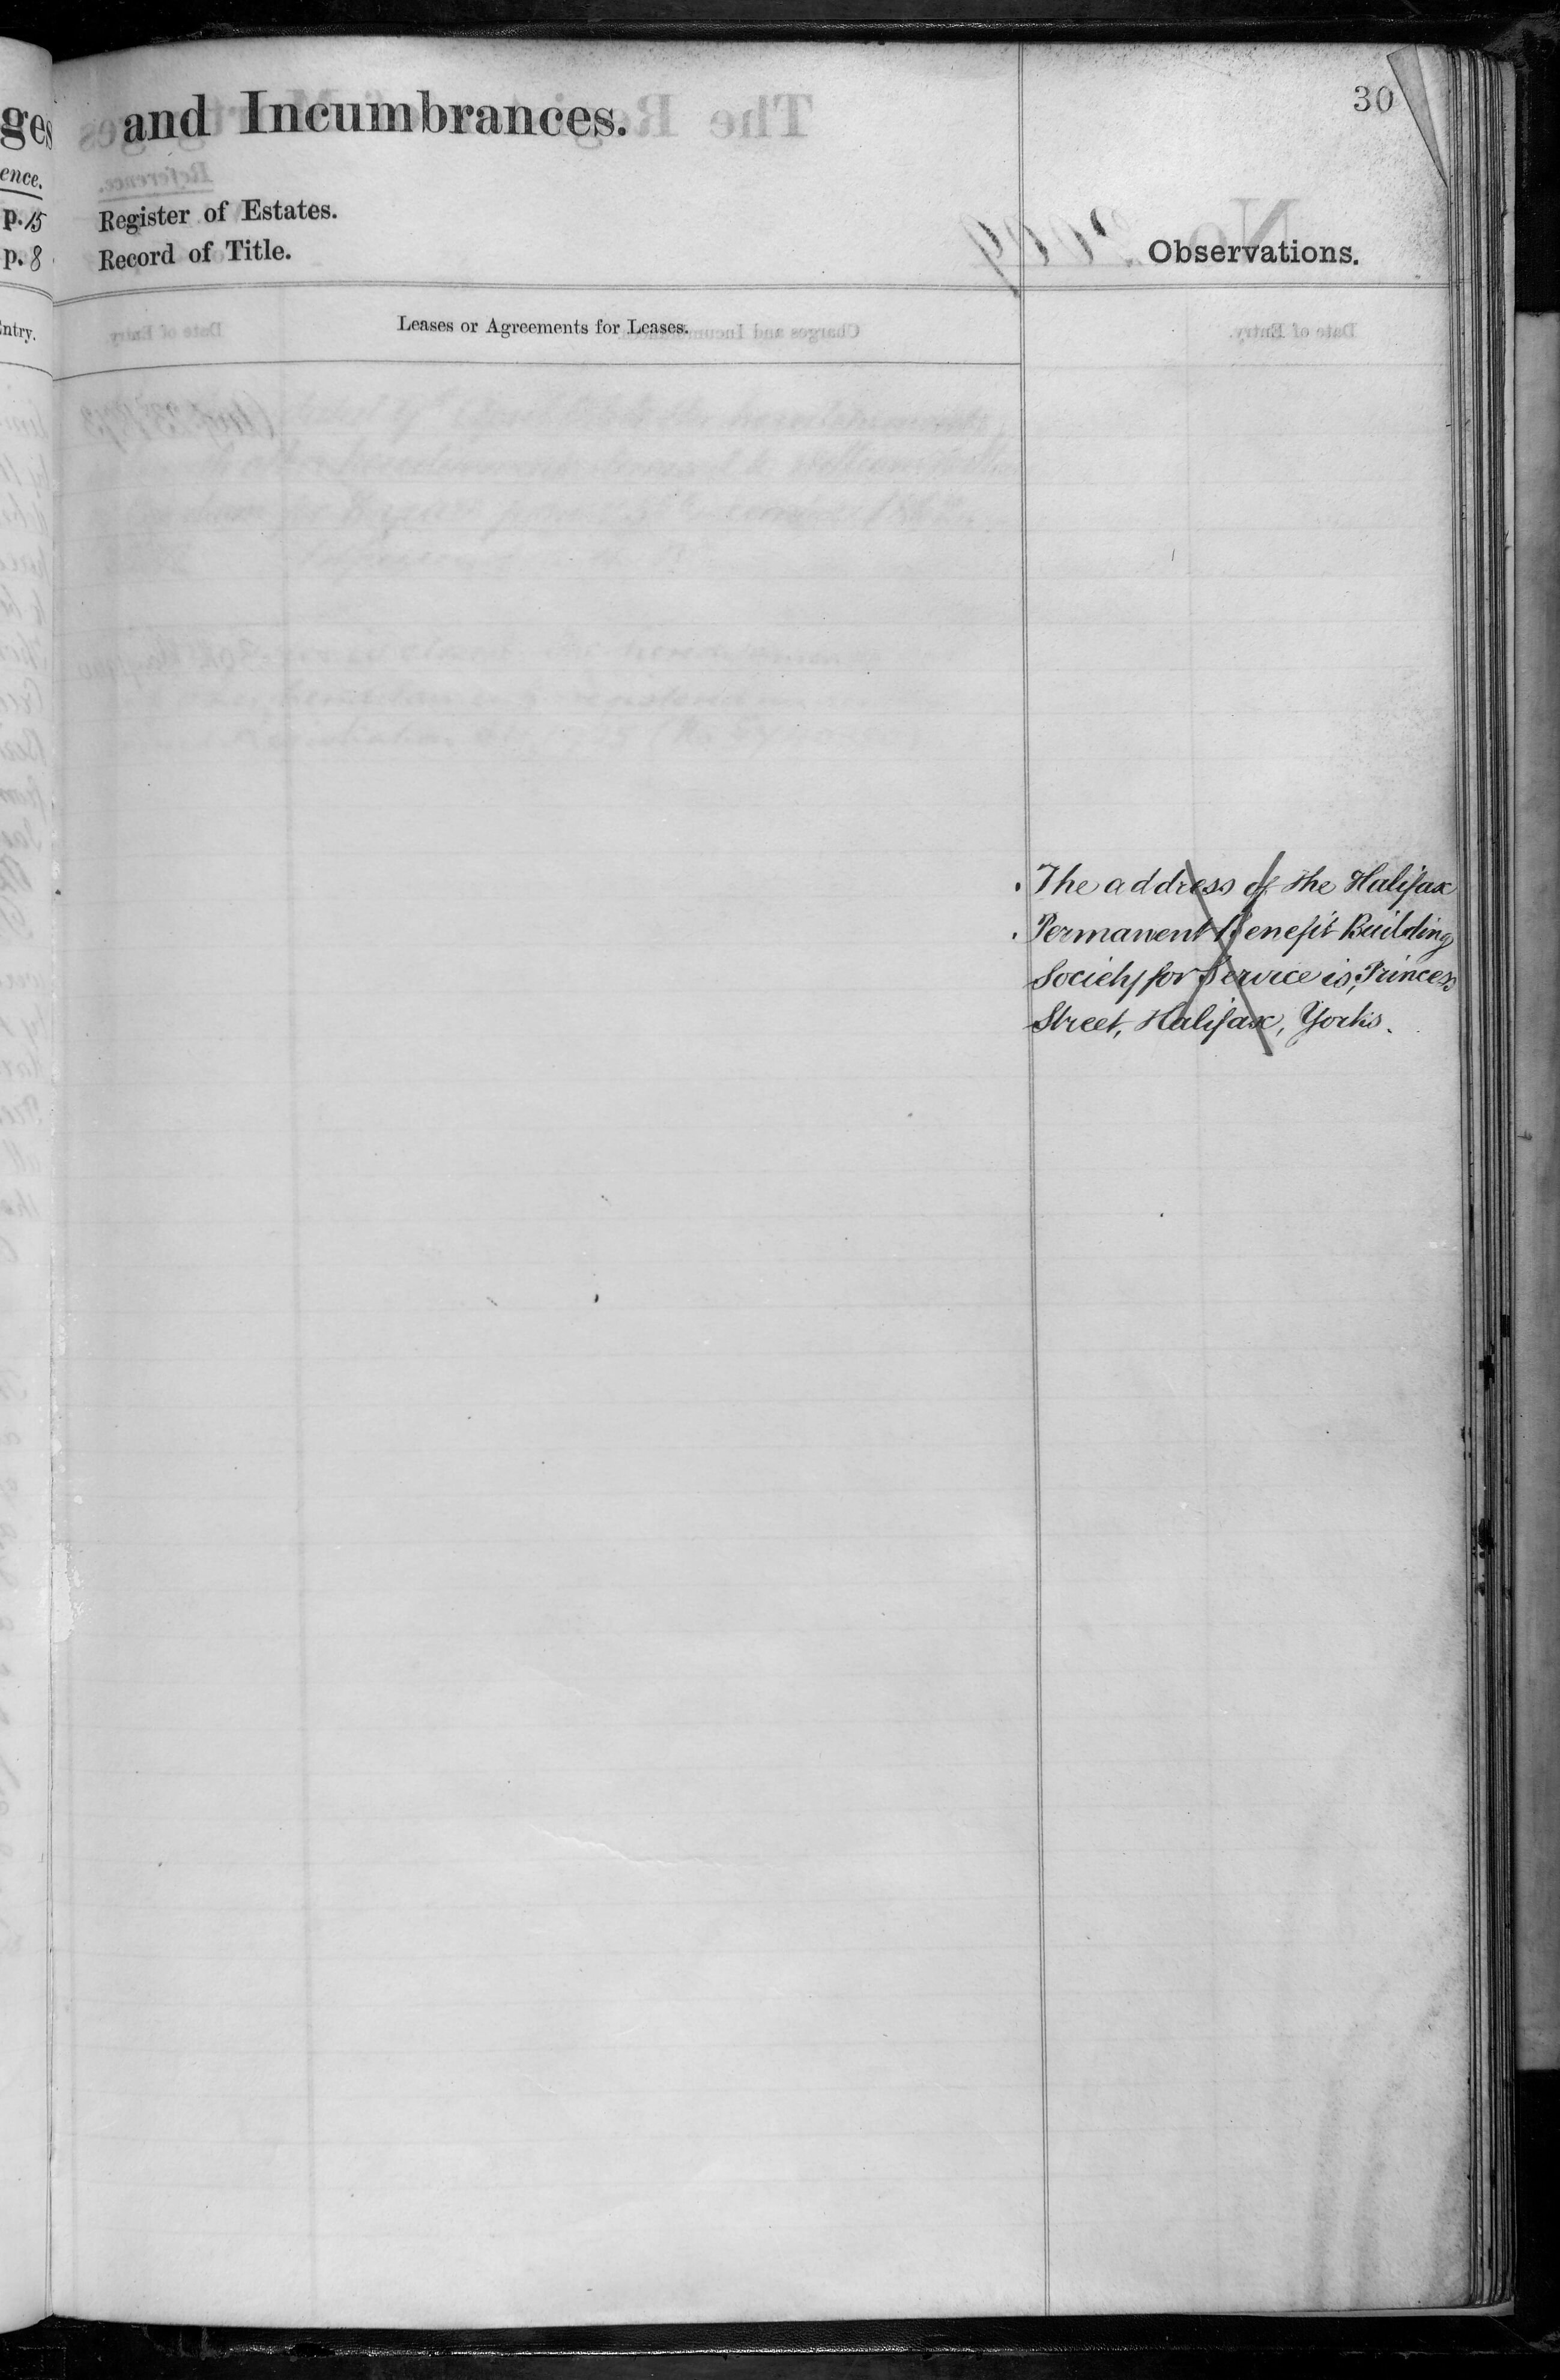 30
and Incumbrances.
Register of Estates.
Record of Title.
Observations.
Leases or Agreements for Leases.
The address of the Halifax
Permanent Benefit Building
Society for Service is, Princess
Street, Halifax, Yorks.
ges
ence.
p. 15
p. 8
Entry.